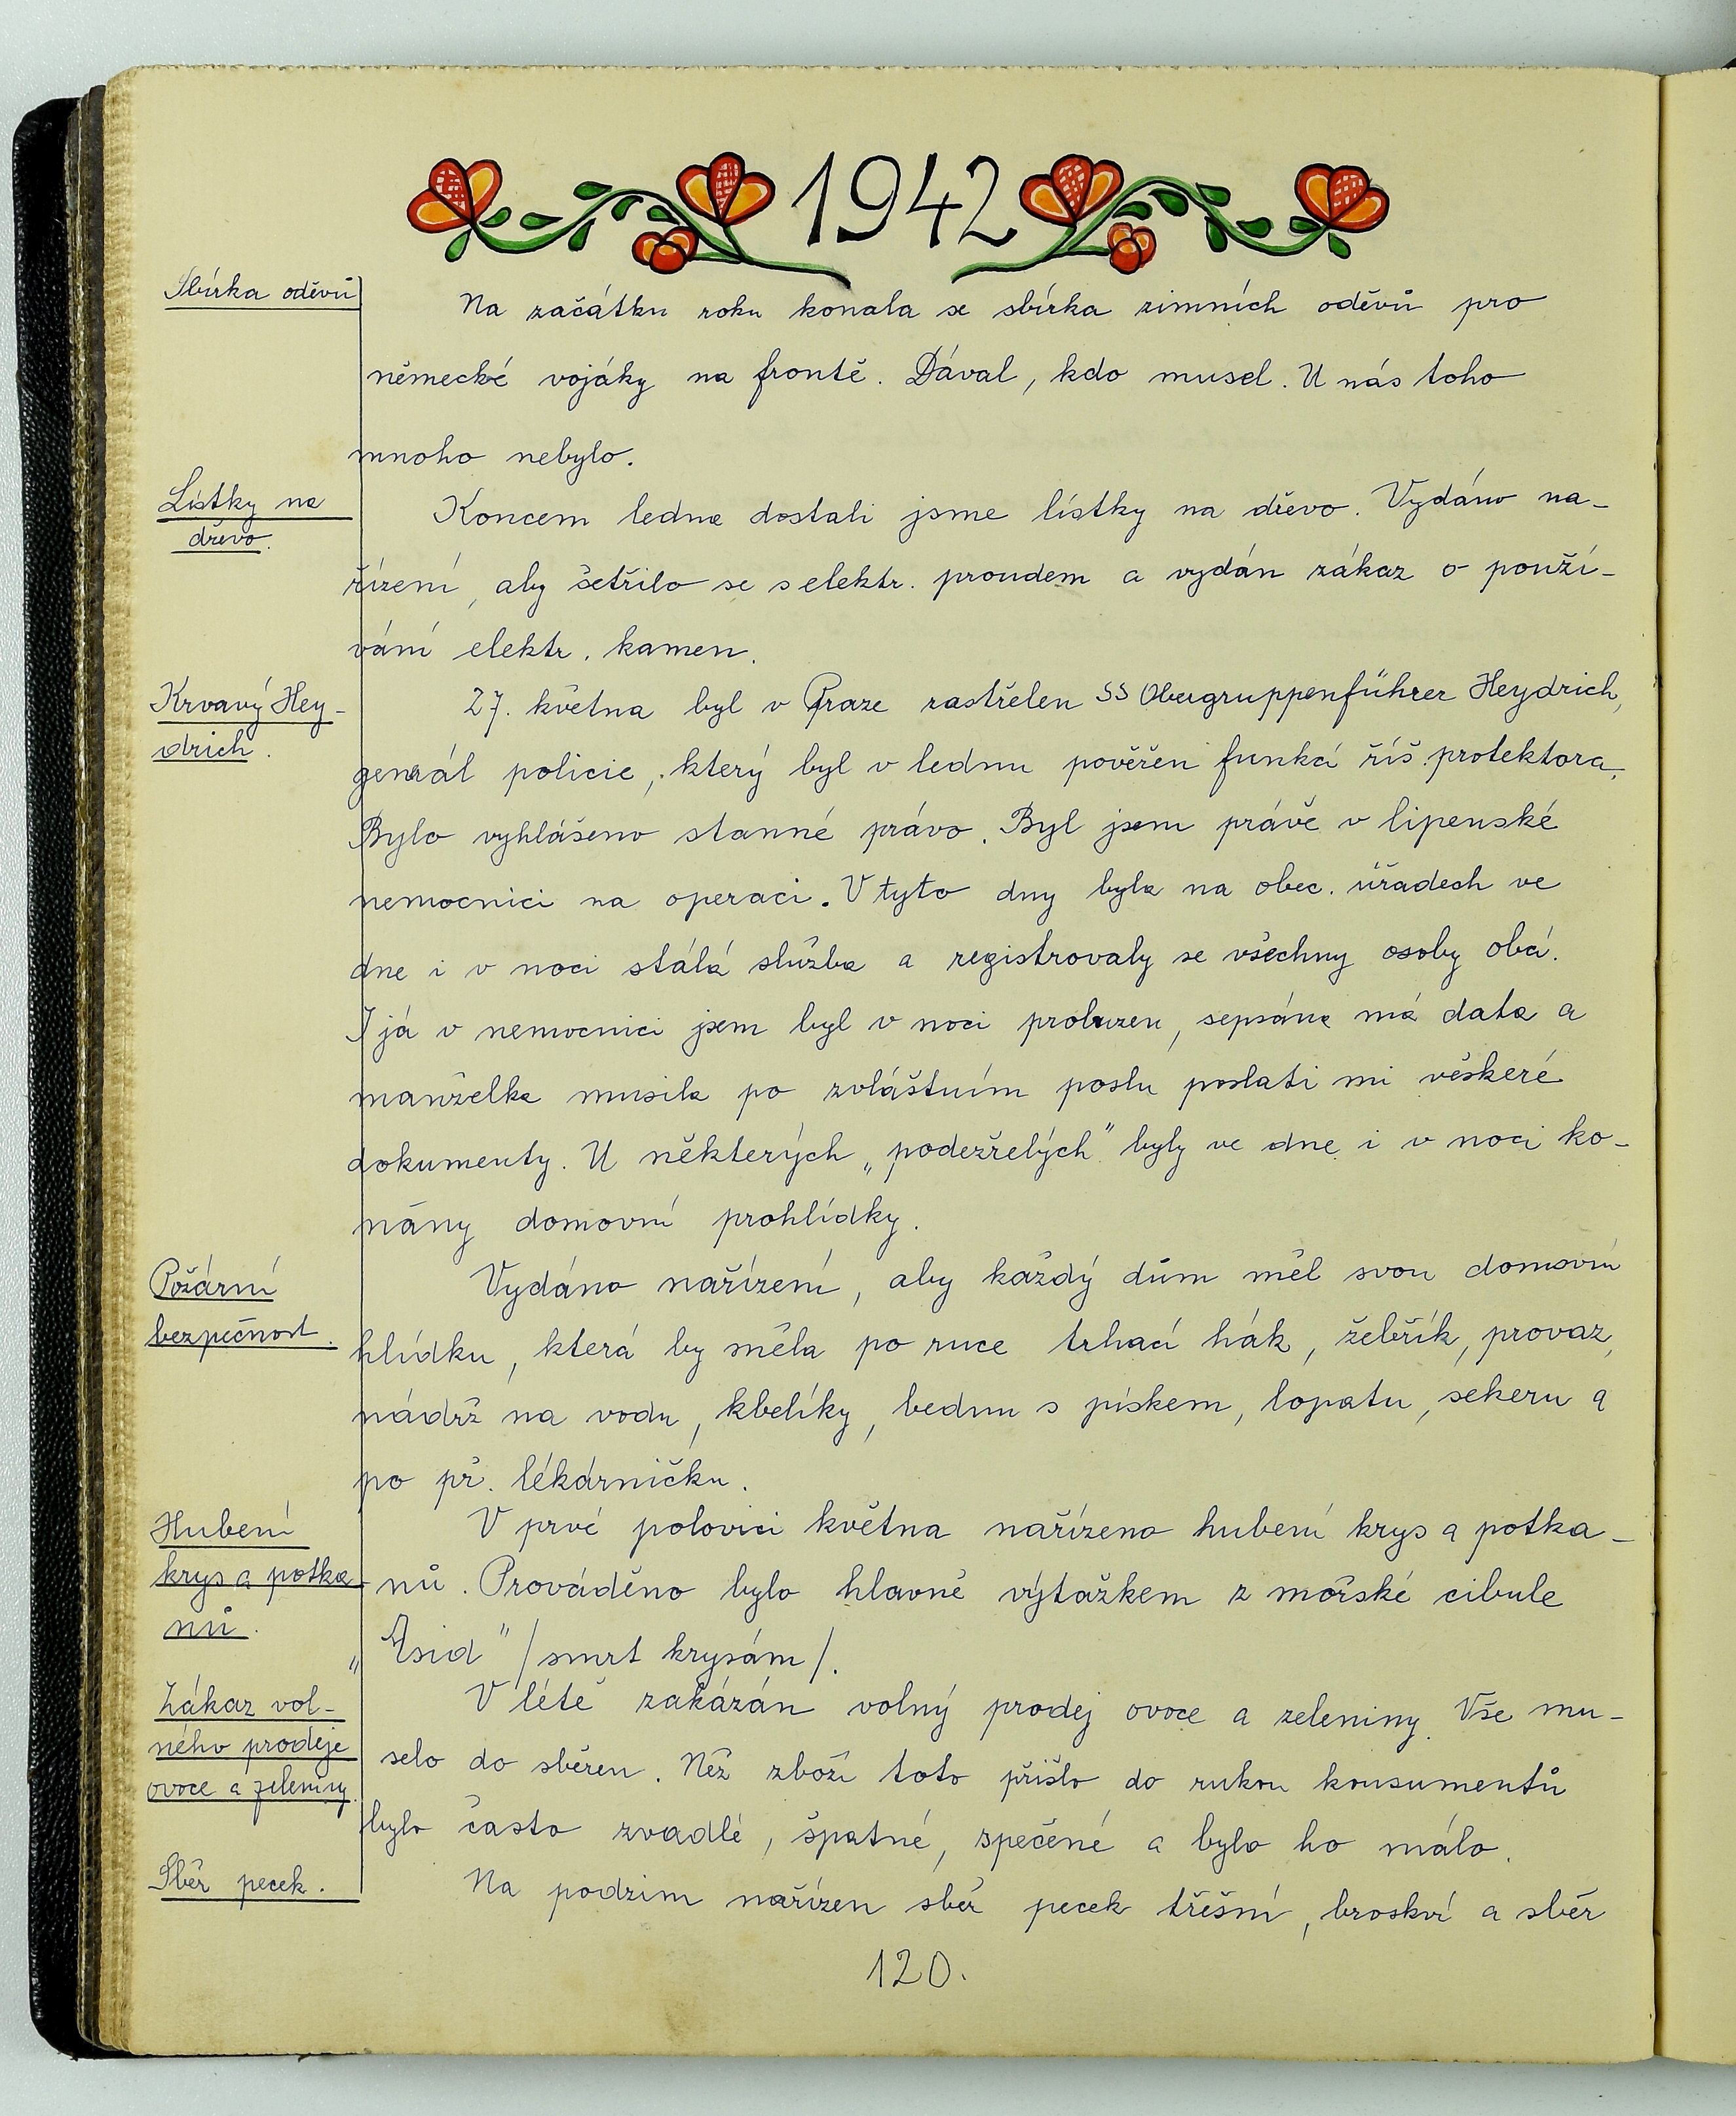 1942
Sbírka oděvů
Na začátku roku konala se sbírka zimních oděvů pro
německé vojáky na frontě. Dával, kdo musel. U nás toho
mnoho nebylo.
Lístky na
dřevo.
Koncem ledna dostali jsme lístky na dřevo. Vydáno na-
řízení, aby šetřilo se s elektr. proudem a vydán zákaz o použí-
vání elektr. kamen.
Krvavý Hey-
drich.
27. května byl v Praze zastřelen SS Obergruppenführer Heydrich,
generál policie, který byl v lednu pověřen funkcí říš. protektora.
Bylo vyhlášeno stanné právo. Byl jsem právě v lipenské
nemocnici na operaci. V tyto dny byla na obec. úřadech ve
dne i v noci stálá služba a registrovaly se všechny osoby obcí.
I já v nemocnici jsem byl v noci probuzen, sepsána má data a
manželka musila po zvláštním poslu poslati mi věškeré
dokumenty. U některých „podezřelých" byly ve dne i v noci ko-
nány domovní prohlídky.
Požární
bezpečnost.
Vydáno nařízení, aby každý dům měl svou domovní
hlídku, která by měla po ruce trhací hák, žebřík, provaz,
nádrž na vodu, kbelíky, bednu s pískem, lopatu, sekeru a
po př. lékárničku.
Hubení
krys a potka-
nů.
V prvé polovici května nařízeno hubení krys a potka-
nů. Prováděno bylo hlavně výtažkem z mořské cibule
„Asid" /smrt krysám/.
Zákaz vol-
ného prodeje
ovoce a zeleniny.
V létě zakázán volný prodej ovoce a zeleniny. Vše mu-
selo do sběren. Něž zboží toto přišlo do rukou konsumentů
bylo často zvadlé, špatné, zpečené a bylo ho málo.
Sběr pecek.
Na podzim nařízen sběr pecek třešní, broskví a sběr
120.